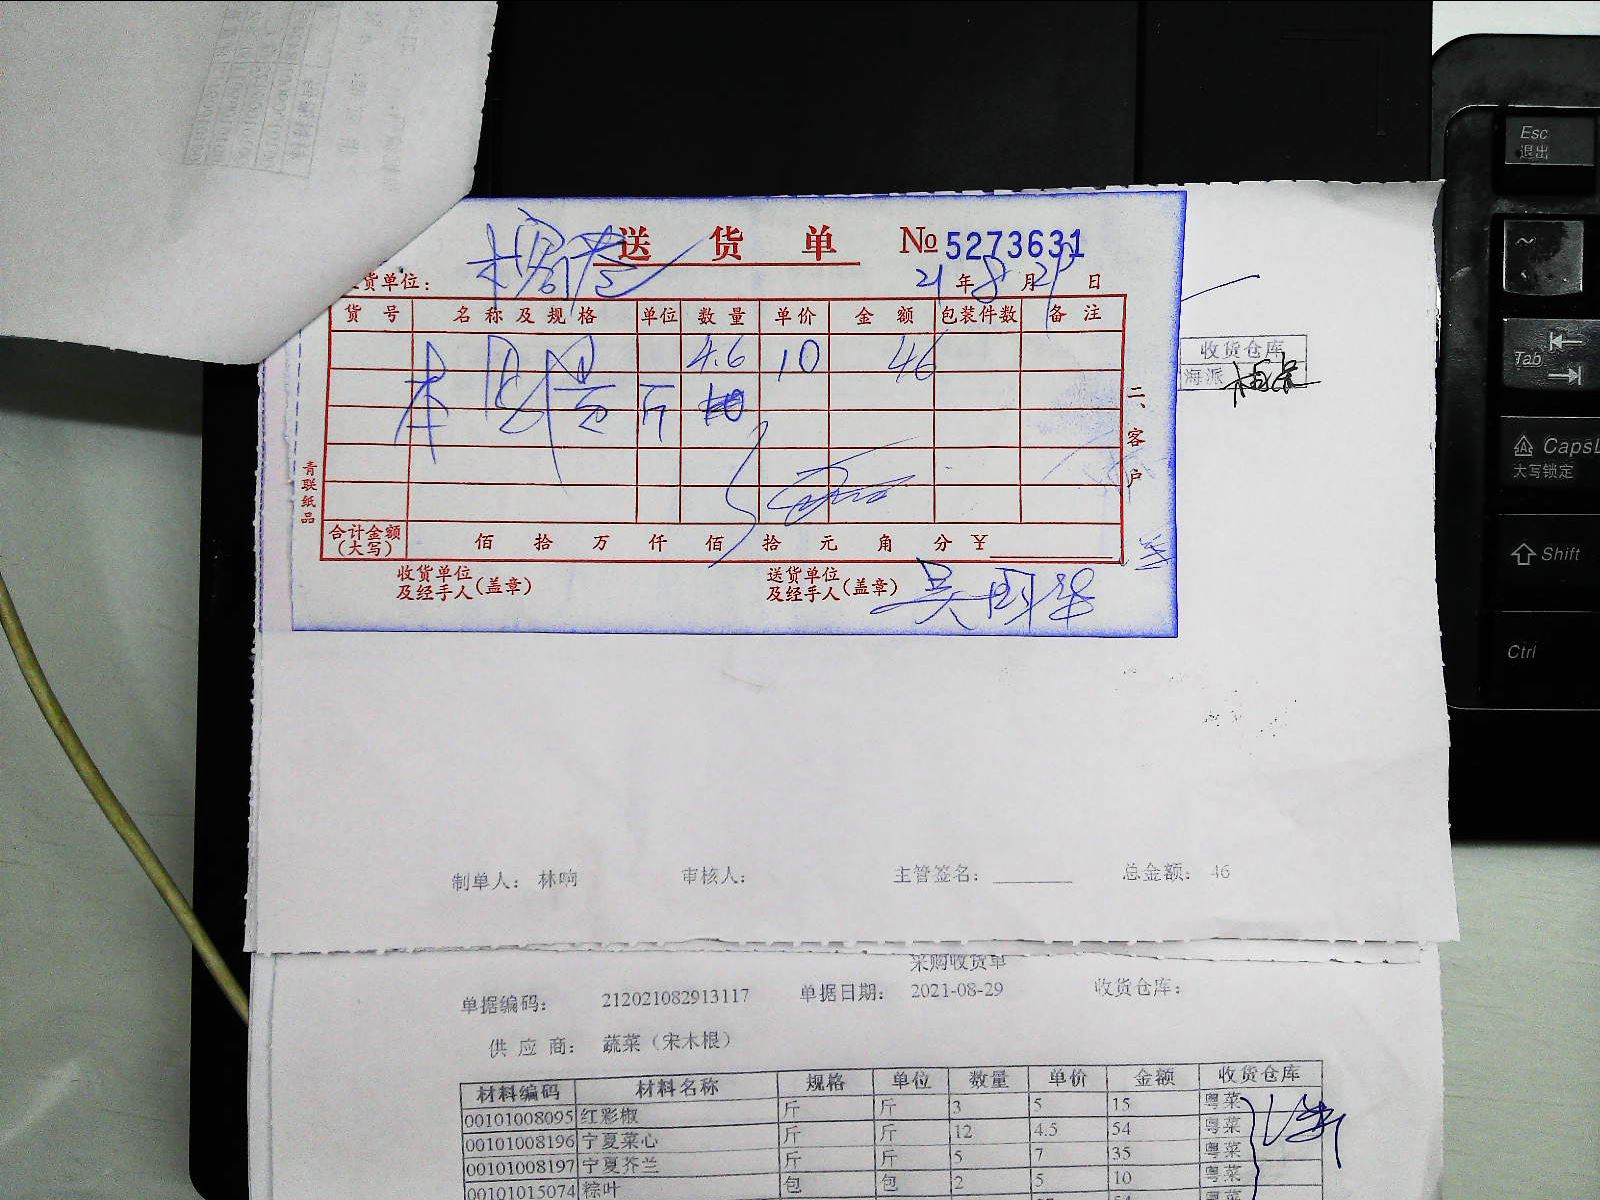 送 货 单 № 5273631
货单位： 21 年 8 月 29 日
货 号 名 称 及 规 格 单位 数 量 单 价 金 额 包装件数 备 注
4.6 10 46
斤
二、客户
青联纸品
合计金额（大写） 佰 拾 万 仟 佰 拾 元 角 分 ￥
收货单位及经手人（盖章） 送货单位及经手人（盖章） 吴国华
收货仓库
海派
制单人： 林响 审核人： 主管签名： 总金额： 46
采购收货单
单据编码： 212021082913117 单据日期： 2021-08-29 收货仓库：
供 应 商： 蔬菜（宋木根）
材料编码 材料名称 规格 单位 数量 单价 金额 收货仓库
00101008095 红彩椒 斤 斤 3 5 15 粤菜
00101008196 宁夏菜心 斤 斤 12 4.5 54 粤菜
00101008197 宁夏芥兰 斤 斤 5 7 35 粤菜
00101015074 粽叶 包 包 2 5 10 粤菜
Esc
退出
~
Tab
CapsL
大写锁定
Shift
Ctrl